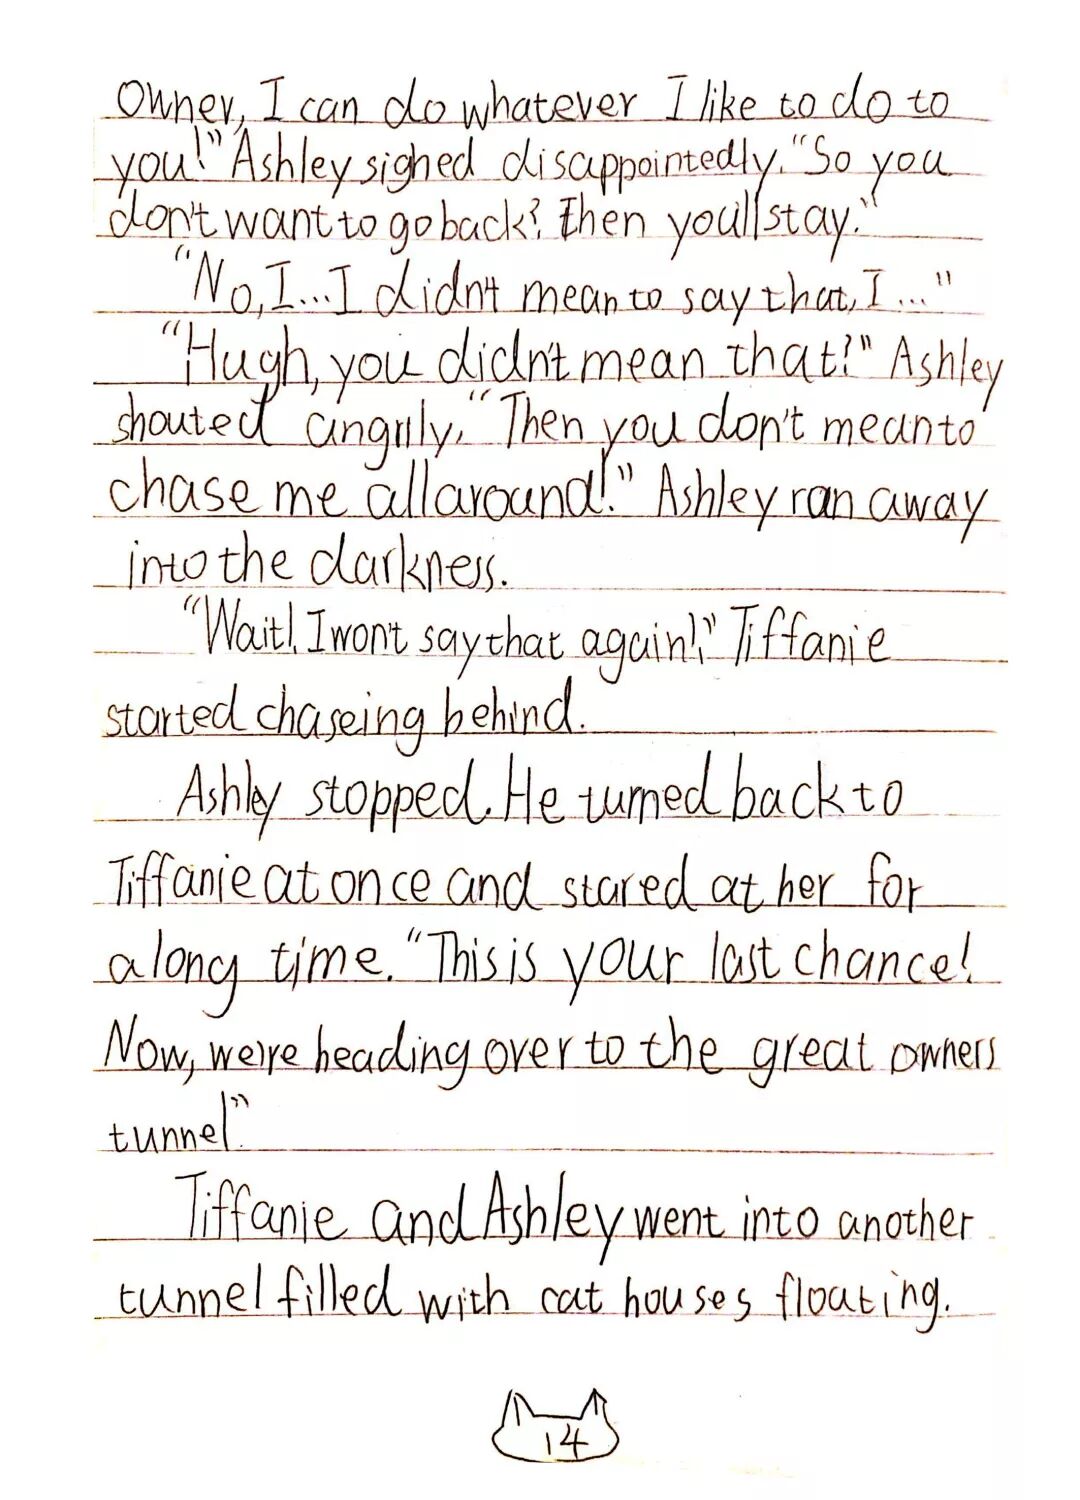 Owner, I can do whatever I like to do to
you!" Ashley sighed disappointedly. "So you
don't want to go back? Then you'll stay."
"No, I... I didn't mean to say that, I ..."
"Hugh, you didn't mean that!" Ashley
shouted angrily, "Then you don't mean to
chase me all around!" Ashley ran away
into the darkness.
"Wait!, I won't say that again!," Tiffanie
started chaseing behind.
Ashley stopped. He turned back to
Tiffanie at once and stared at her for
a long time. "This is your last chance!
Now, we're heading over to the great owners
tunnel."
Tiffanie and Ashley went into another
tunnel filled with cat houses floating.
14